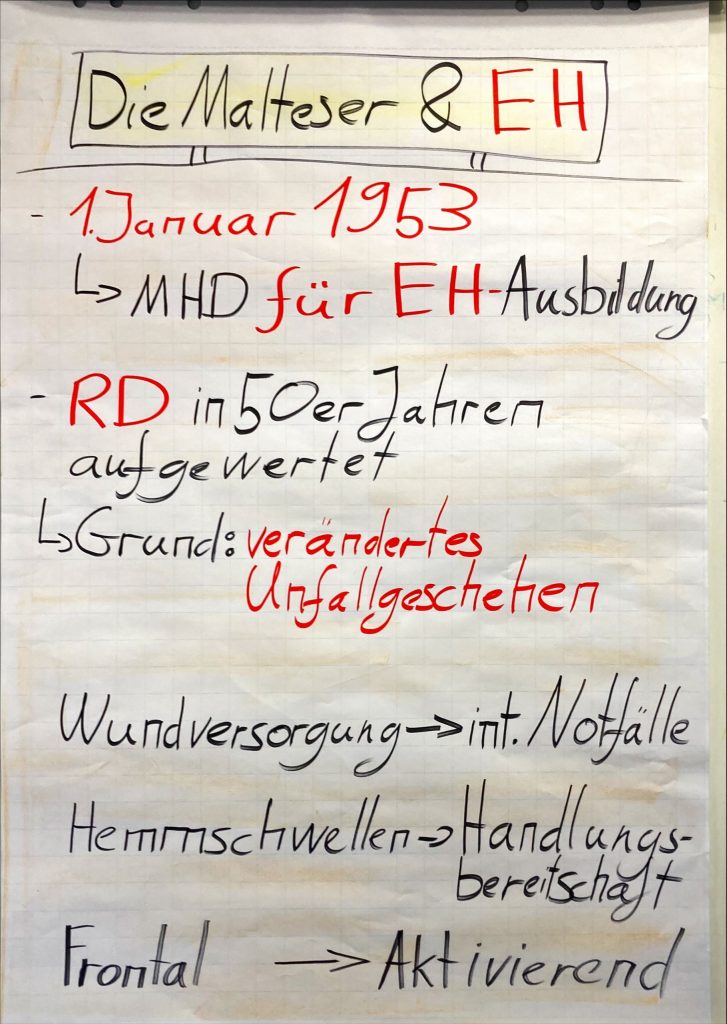 Die Malteser & EH
- 1. Januar 1953
↳ MHD für EH-Ausbildung
- RD in 50er Jahren
aufgewertet
↳ Grund: verändertes
Unfallgeschehen
Wundversorgung → int. Notfälle
Hemmschwellen → Handlungs-
bereitschaft
Frontal → Aktivierend